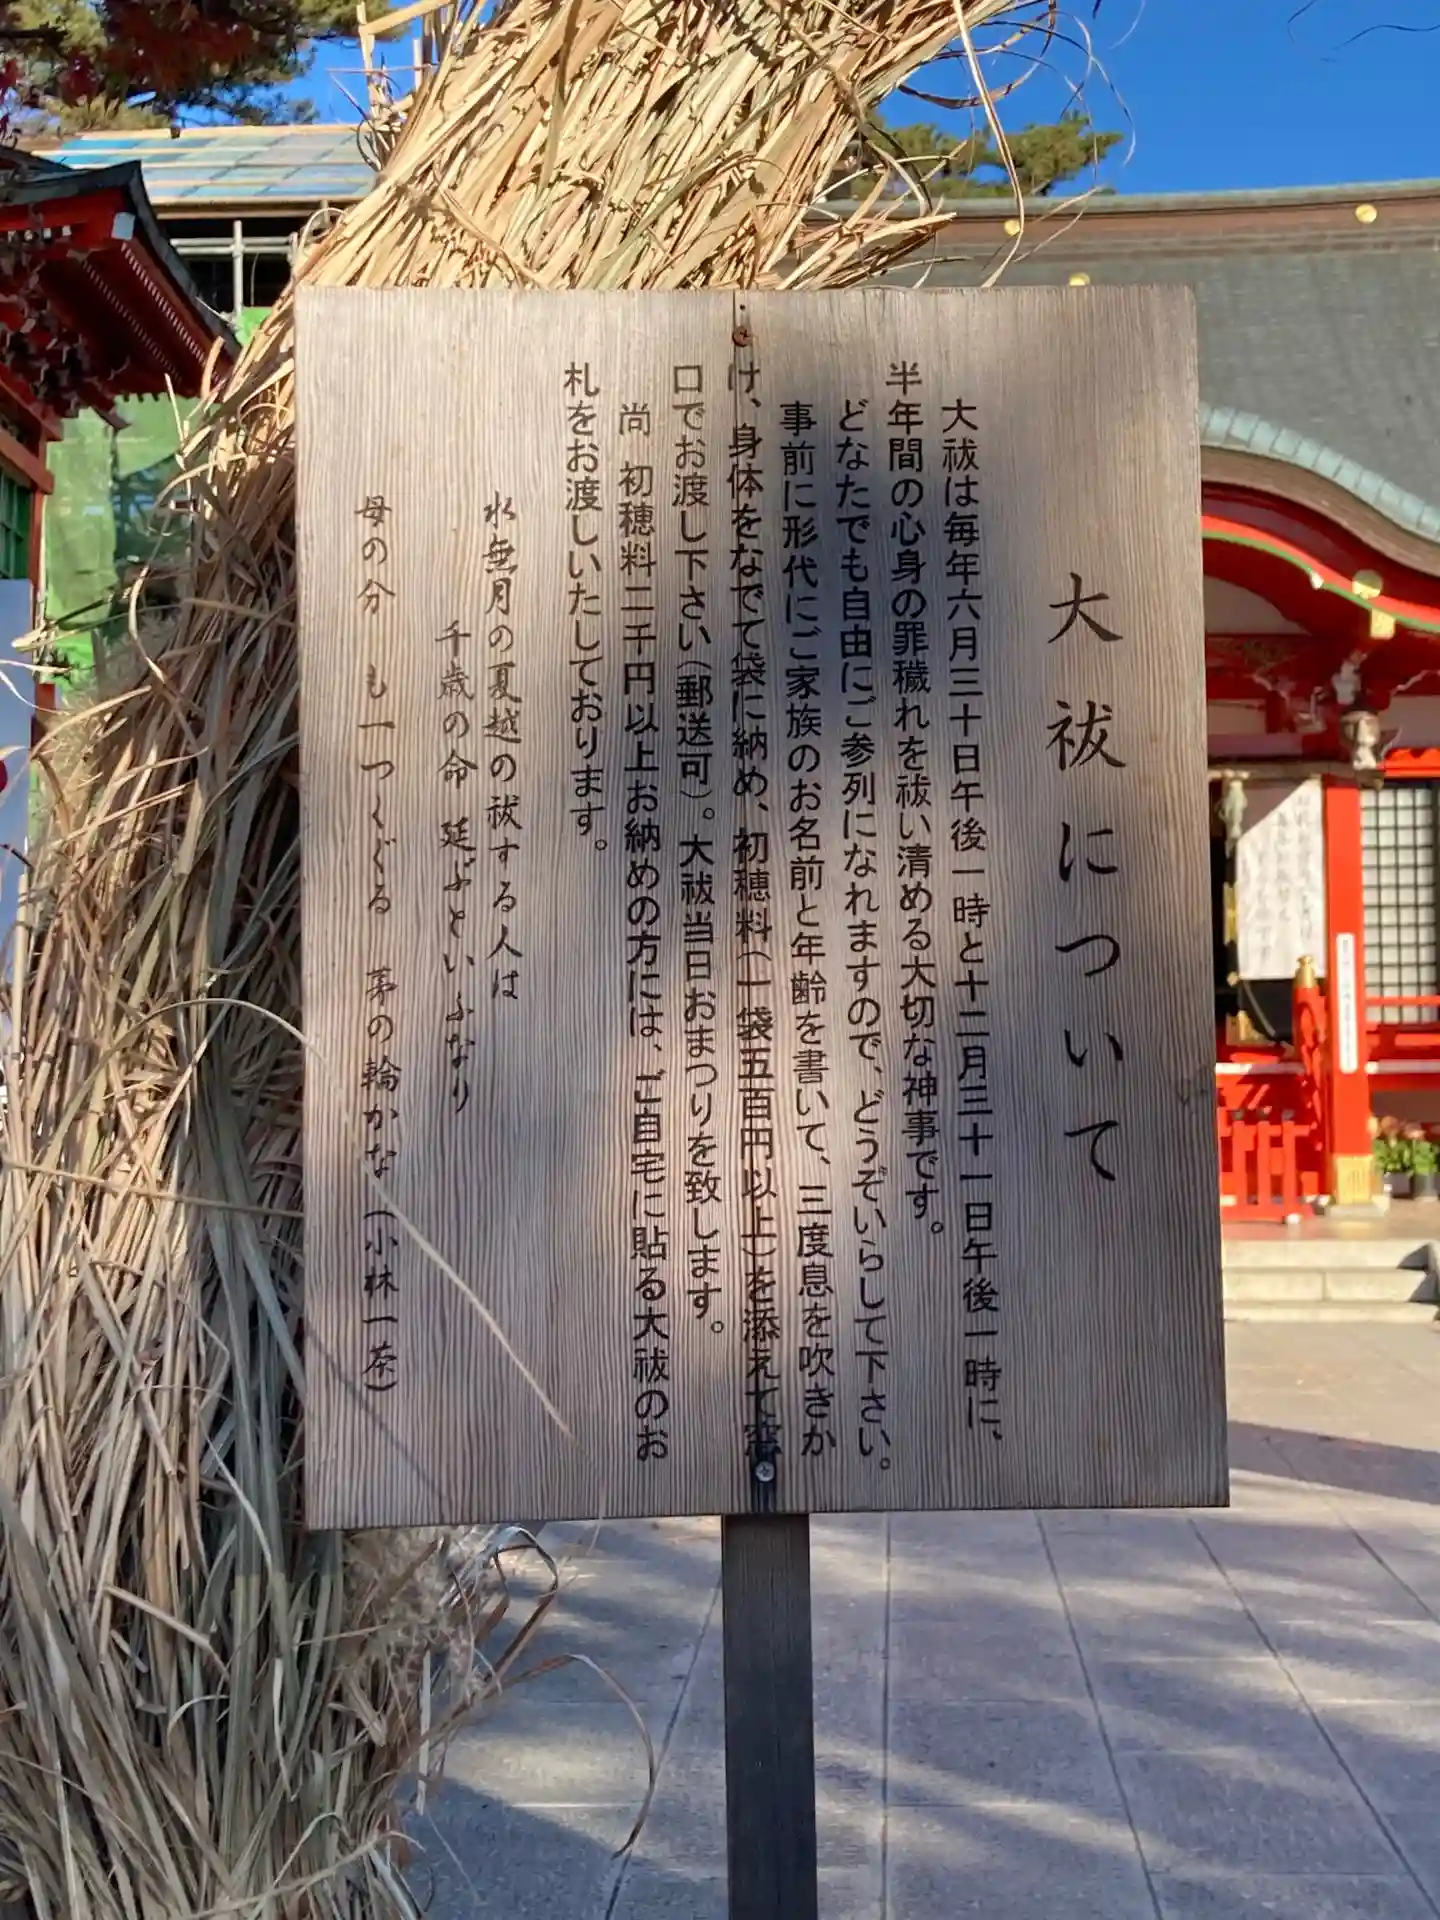 大祓について
大祓は毎年六月三十日午後一時と十二月三十一日午後一時に、
半年間の心身の罪穢れを祓い清める大切な神事です。
どなたでも自由にご参列になれますので、どうぞいらして下さい。
事前に形代にご家族のお名前と年齢を書いて、三度息を吹きか
け、身体をなでて袋に納め、初穂料(一袋五百円以上)を添えて窓
口でお渡し下さい(郵送可)。大祓当日おまつりを致します。
尚 初穂料二千円以上お納めの方には、ご自宅に貼る大祓のお
札をお渡しいたしております。
水無月の夏越の祓する人は
千歳の命 延ぶといふなり
母の分 も一つくぐる 茅の輪かな(小林一茶)